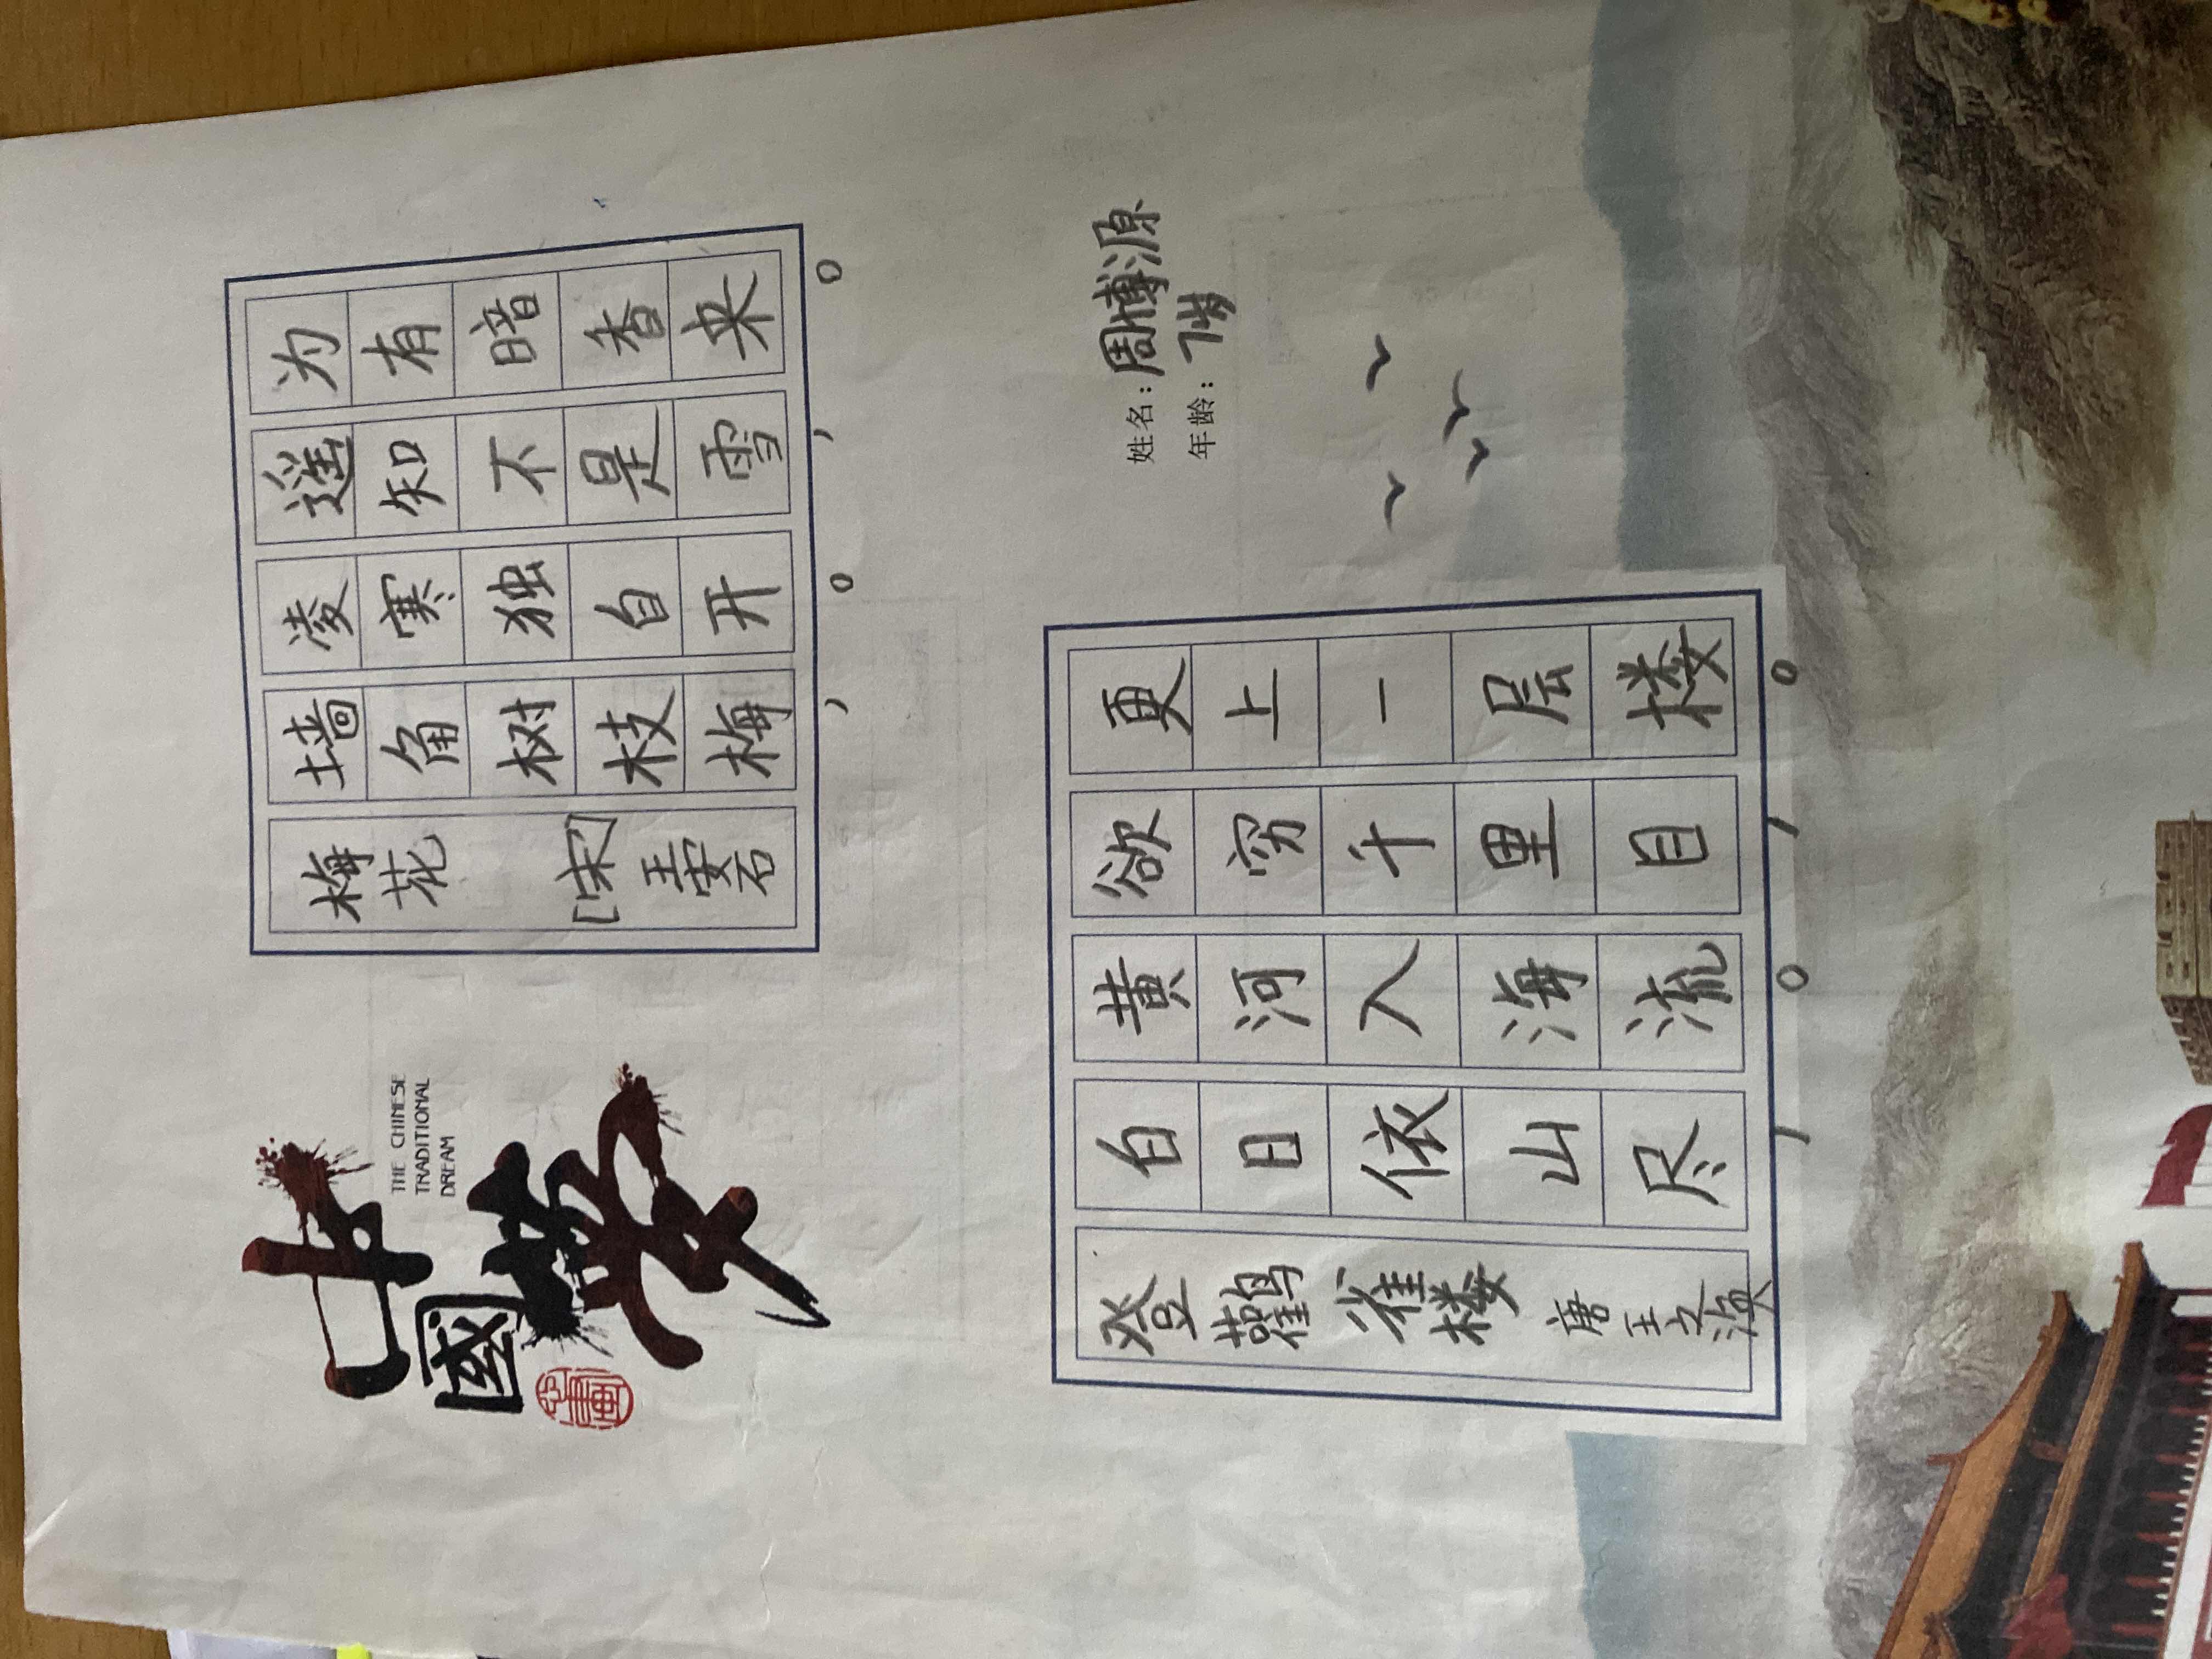 中國梦
THE CHINESE
TRADITIONAL
DREAM
梅花 [宋] 王安石
墙角树枝梅,
凌寒独自开。
遥知不是雪,
为有暗香来。
登鹳雀楼 唐 王之涣
白日依山尽,
黄河入海流。
欲穷千里目,
更上一层楼。
姓名:周博源
年龄:7岁